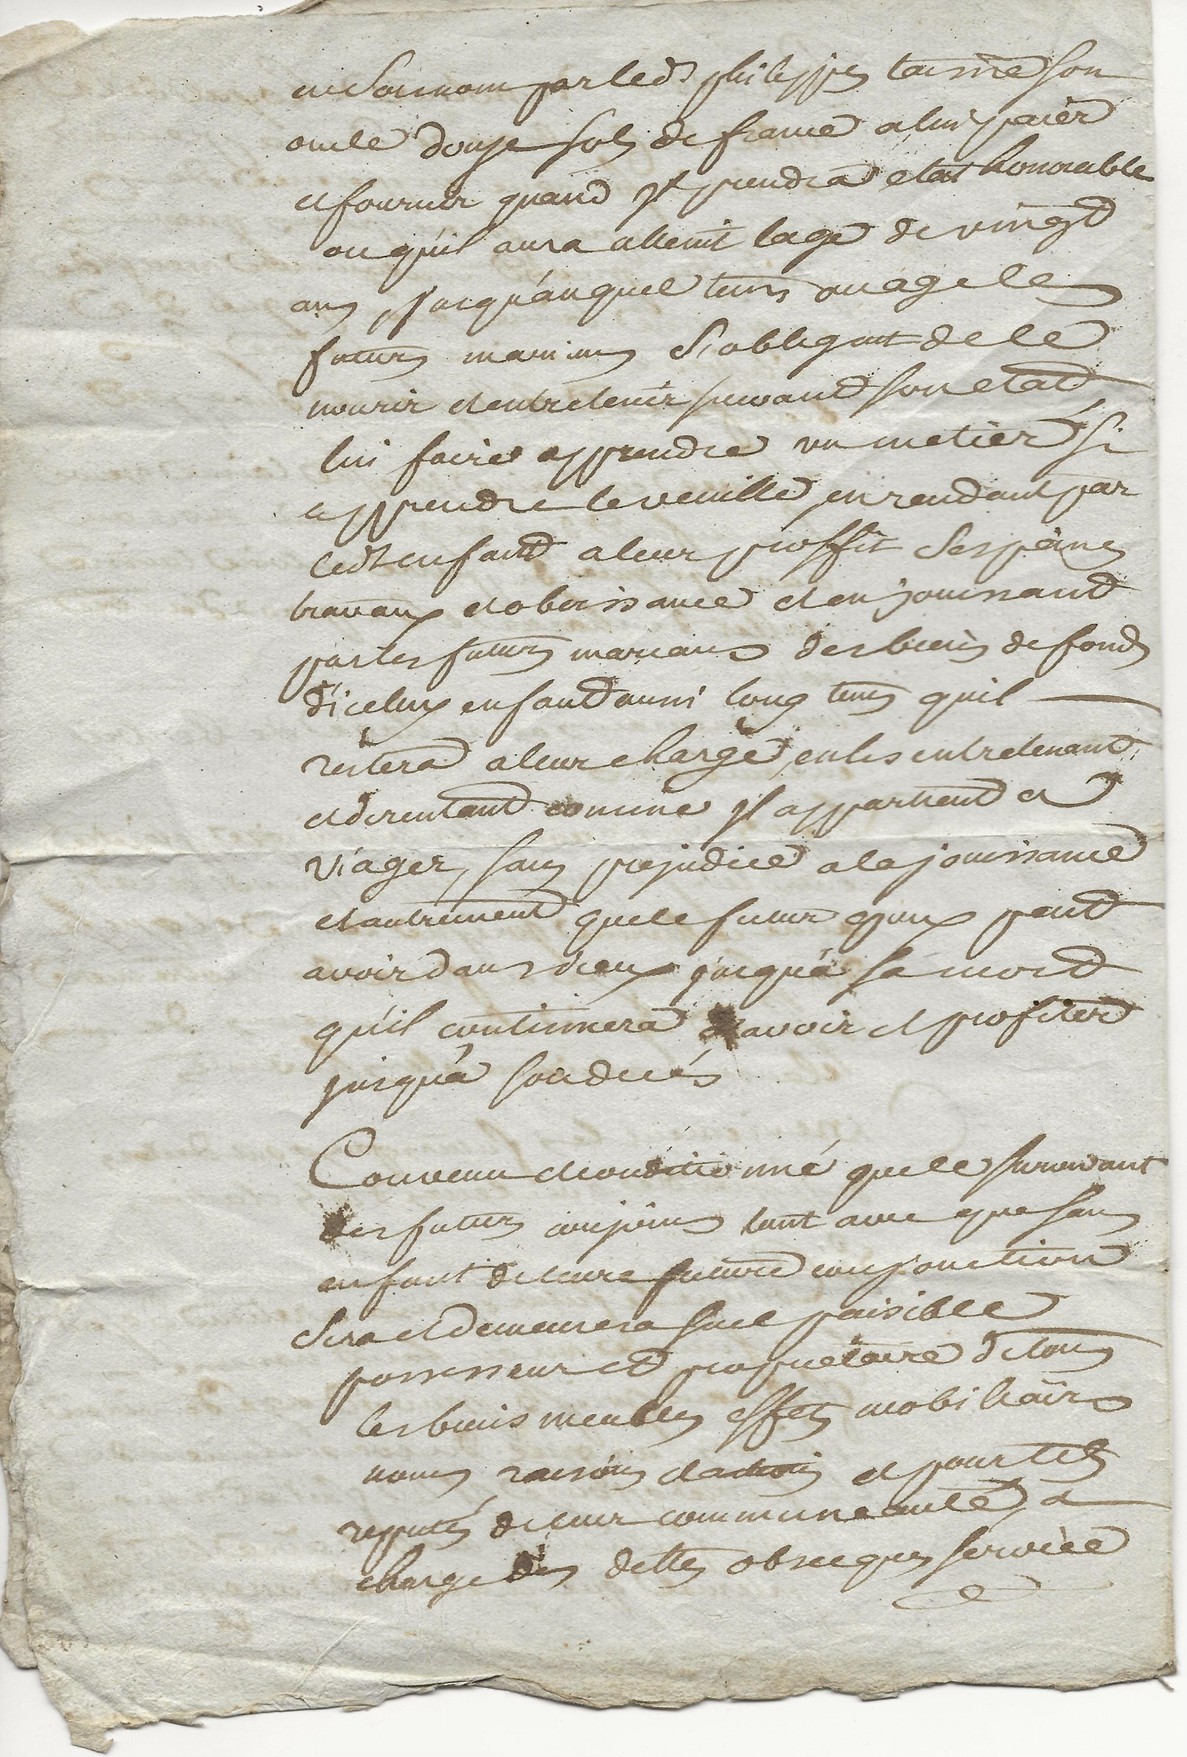 en son nom par led philippes son
oncle douze sols de france a lui paier
et fournir quand jl prendra etat honorable
ou qu'il aura atteint lage de vingt
ans, jusqu'auquel tems ou age les
futurs marians s'obligent de le
nourir et entretenir suivand son etat
lui faire apprendre un metier si
apprendre le veuille, en rendant par
ledt enfand a leur proffit ses peines
travaux et obeissance et en jouissand
par les futurs mariants des biens de fonds
d'icelux enfand aussi long tems quil
restera a leur charge, en les entretenant
et derentant comme jl appartiend a
viager, sans prejudice a la jouissance
et autrement que le futur epoux peut
avoir dans iceux jusqu'a sa mort
qu'il continuera d'avoir et profiter
jusqu'a son decés

Convenu et conditionné que le survivant
des futurs conjoins tant avec que sans
enfant de leure future conjonction
sera et demeurera seul paisible
possesseur et propriétaire de tous
les biens meubles effets mobiliairs
noms raisons et actions et pour tels
reputés de leur communeauté, a
charge des dettes obseques service